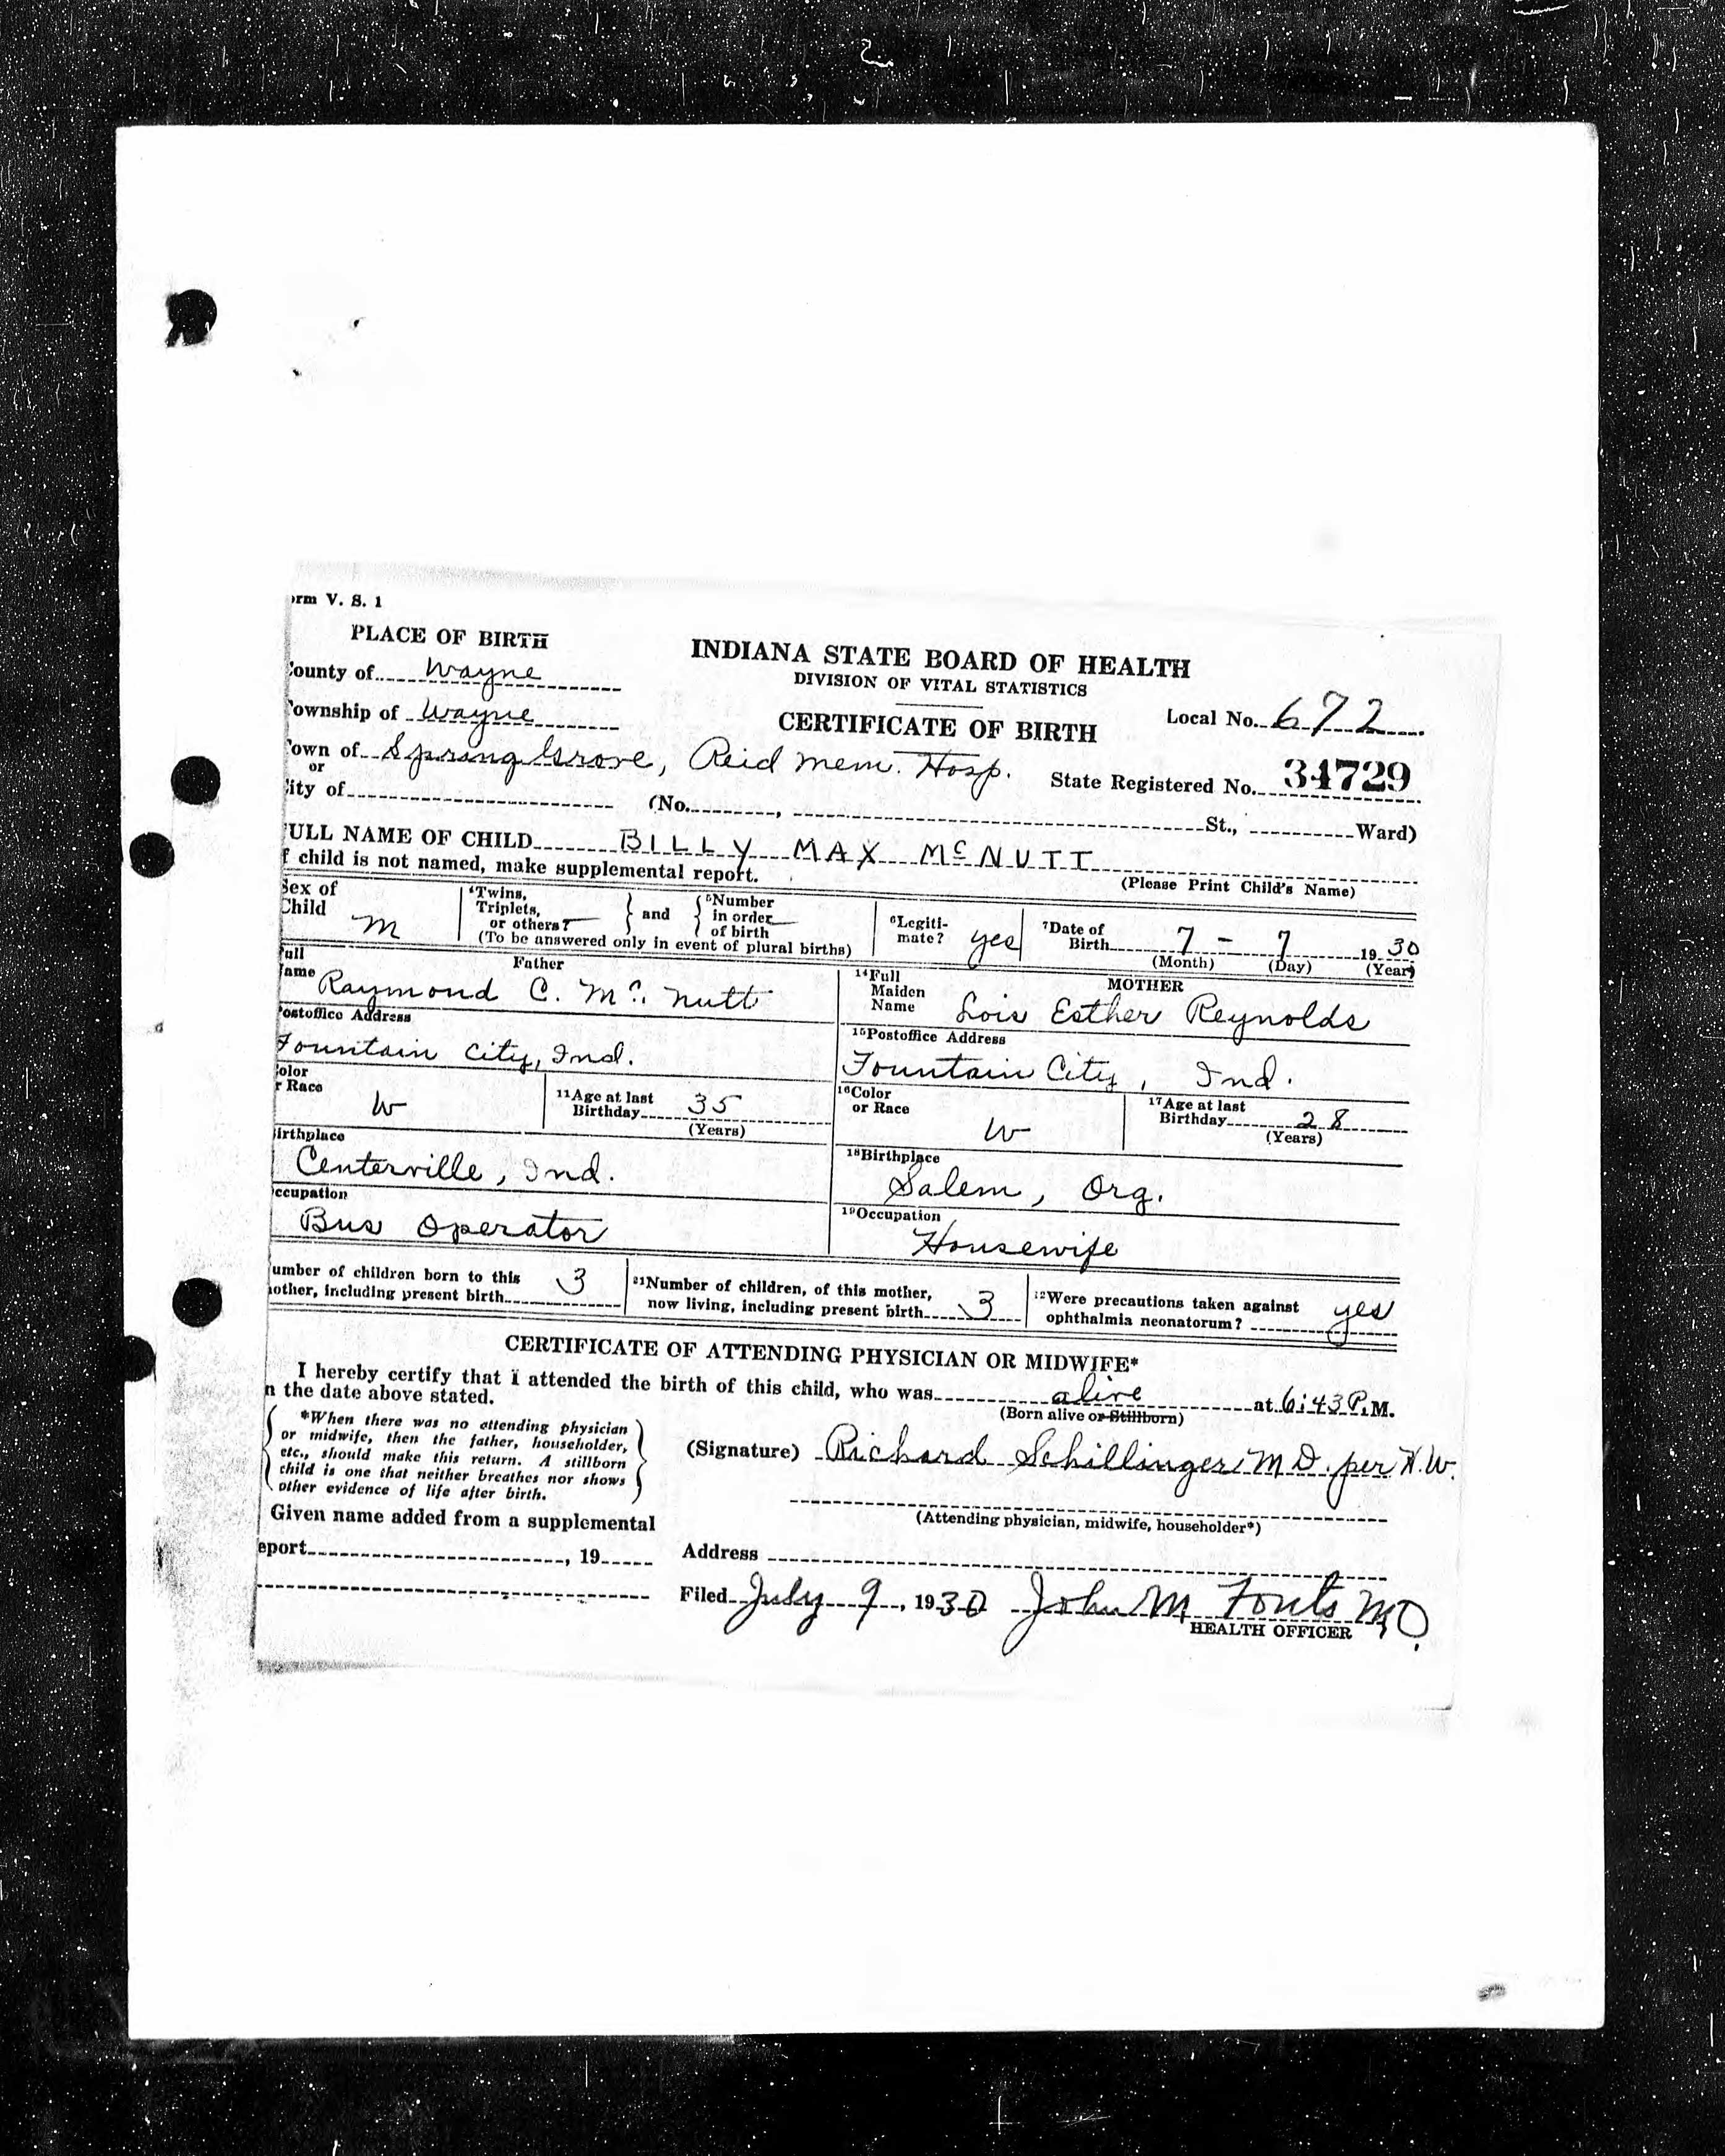 orm V. S. 1
PLACE OF BIRTH
INDIANA STATE BOARD OF HEALTH
DIVISION OF VITAL STATISTICS
County of Wayne
Township of Wayne
CERTIFICATE OF BIRTH
Local No. 672
Town of Spring Grove, Reid Mem. Hosp.
or
City of (No. , St., Ward)
State Registered No. 34729
FULL NAME OF CHILD BILLY MAX McNUTT
If child is not named, make supplemental report. (Please Print Child's Name)
Sex of Child M
4Twins, Triplets, or others? — and 5Number in order of birth —
(To be answered only in event of plural births)
6Legiti-mate? yes
7Date of Birth 7 - 7 1930
(Month) (Day) (Year)
Father
Full Name Raymond C. Mc. Nutt
MOTHER
14Full Maiden Name Lois Esther Reynolds
Postoffice Address
Fountain City, Ind.
15Postoffice Address
Fountain City, Ind.
Color or Race W
11Age at last Birthday 35
(Years)
16Color or Race W
17Age at last Birthday 28
(Years)
Birthplace
Centerville, Ind.
18Birthplace
Salem, Org.
Occupation
Bus Operator
19Occupation
Housewife
umber of children born to this
mother, including present birth 3
21Number of children, of this mother,
now living, including present birth 3
22Were precautions taken against
ophthalmia neonatorum? yes
CERTIFICATE OF ATTENDING PHYSICIAN OR MIDWIFE*
I hereby certify that I attended the birth of this child, who was alive at 6:43 P.M.
on the date above stated. (Born alive or Stillborn)
*When there was no attending physician
or midwife, then the father, householder,
etc., should make this return. A stillborn
child is one that neither breathes nor shows
other evidence of life after birth.
(Signature) Richard Schillinger M D. per H. W.
(Attending physician, midwife, householder*)
Given name added from a supplemental
report , 19
Address
Filed July 9, 1930 John M Fouts MD.
HEALTH OFFICER